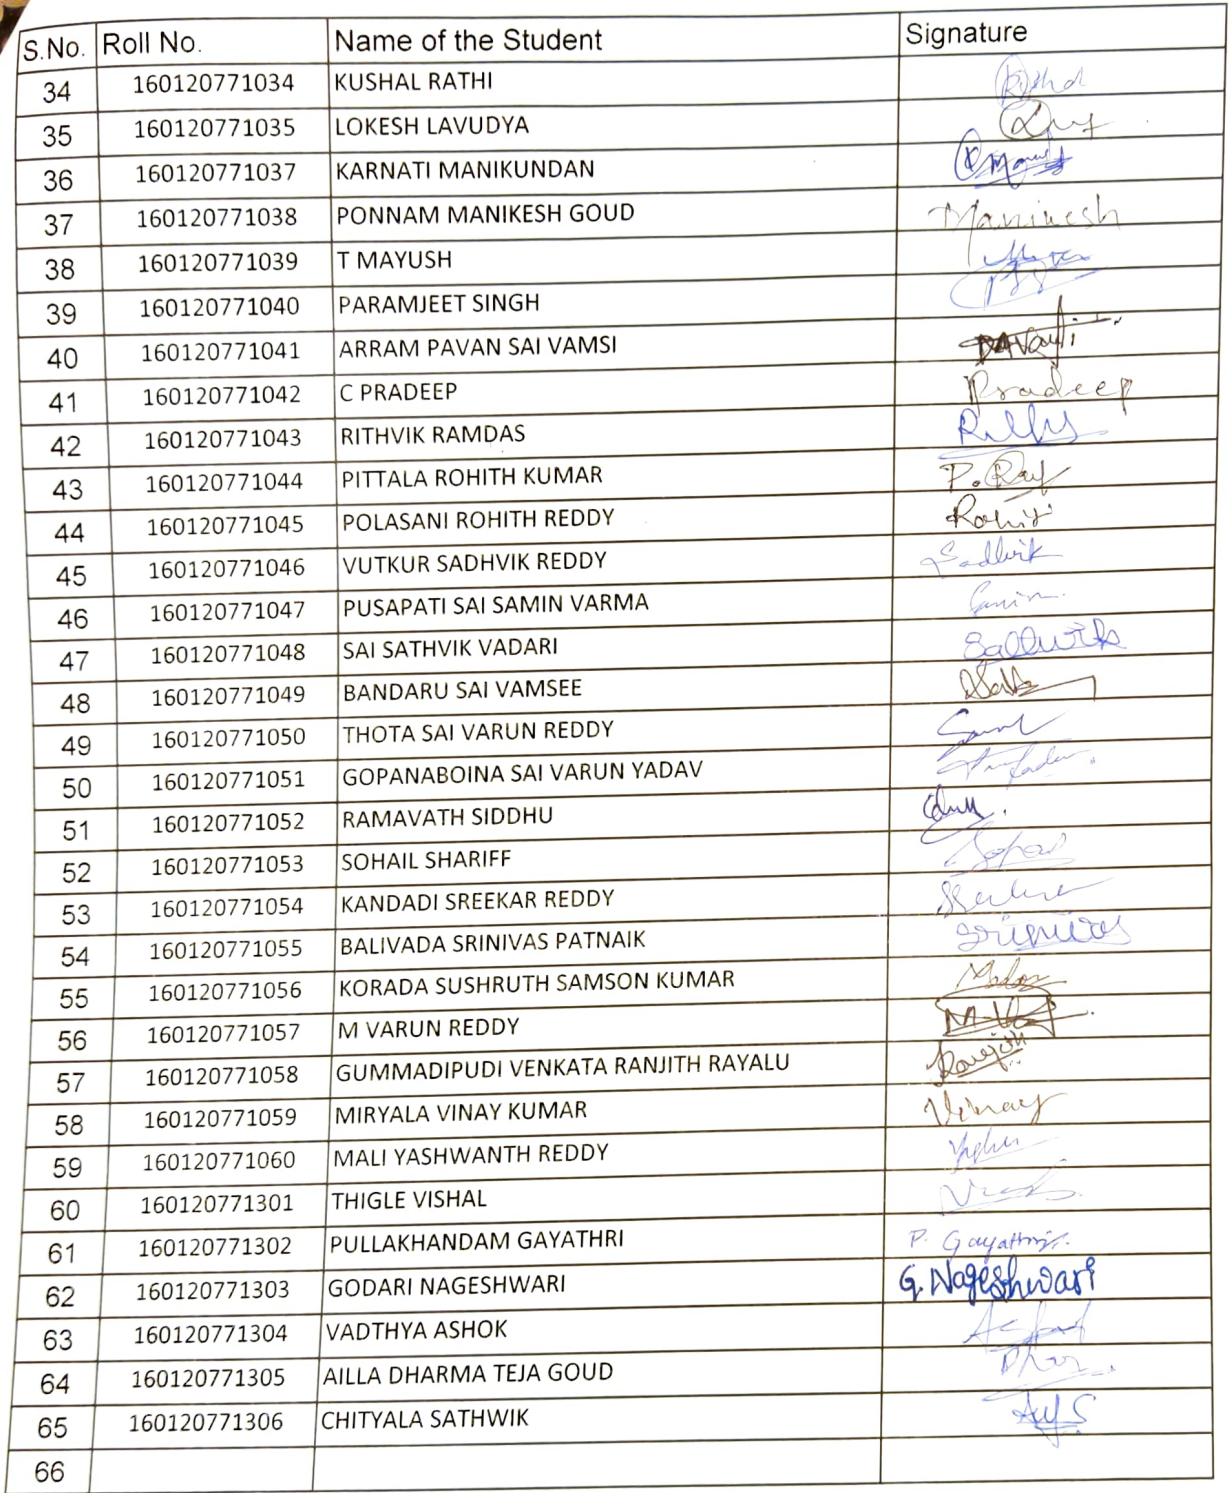 S.No. Roll No. Name of the Student Signature
34 160120771034 KUSHAL RATHI
35 160120771035 LOKESH LAVUDYA
36 160120771037 KARNATI MANIKUNDAN
37 160120771038 PONNAM MANIKESH GOUD Manikesh
38 160120771039 T MAYUSH
39 160120771040 PARAMJEET SINGH
40 160120771041 ARRAM PAVAN SAI VAMSI
41 160120771042 C PRADEEP Pradeep
42 160120771043 RITHVIK RAMDAS
43 160120771044 PITTALA ROHITH KUMAR
44 160120771045 POLASANI ROHITH REDDY
45 160120771046 VUTKUR SADHVIK REDDY Sadhvik
46 160120771047 PUSAPATI SAI SAMIN VARMA
47 160120771048 SAI SATHVIK VADARI
48 160120771049 BANDARU SAI VAMSEE
49 160120771050 THOTA SAI VARUN REDDY
50 160120771051 GOPANABOINA SAI VARUN YADAV
51 160120771052 RAMAVATH SIDDHU
52 160120771053 SOHAIL SHARIFF
53 160120771054 KANDADI SREEKAR REDDY
54 160120771055 BALIVADA SRINIVAS PATNAIK Srinivas
55 160120771056 KORADA SUSHRUTH SAMSON KUMAR
56 160120771057 M VARUN REDDY
57 160120771058 GUMMADIPUDI VENKATA RANJITH RAYALU Ranjith
58 160120771059 MIRYALA VINAY KUMAR Vinay
59 160120771060 MALI YASHWANTH REDDY
60 160120771301 THIGLE VISHAL
61 160120771302 PULLAKHANDAM GAYATHRI P. Gayathri
62 160120771303 GODARI NAGESHWARI G. Nageshwari
63 160120771304 VADTHYA ASHOK
64 160120771305 AILLA DHARMA TEJA GOUD
65 160120771306 CHITYALA SATHWIK
66